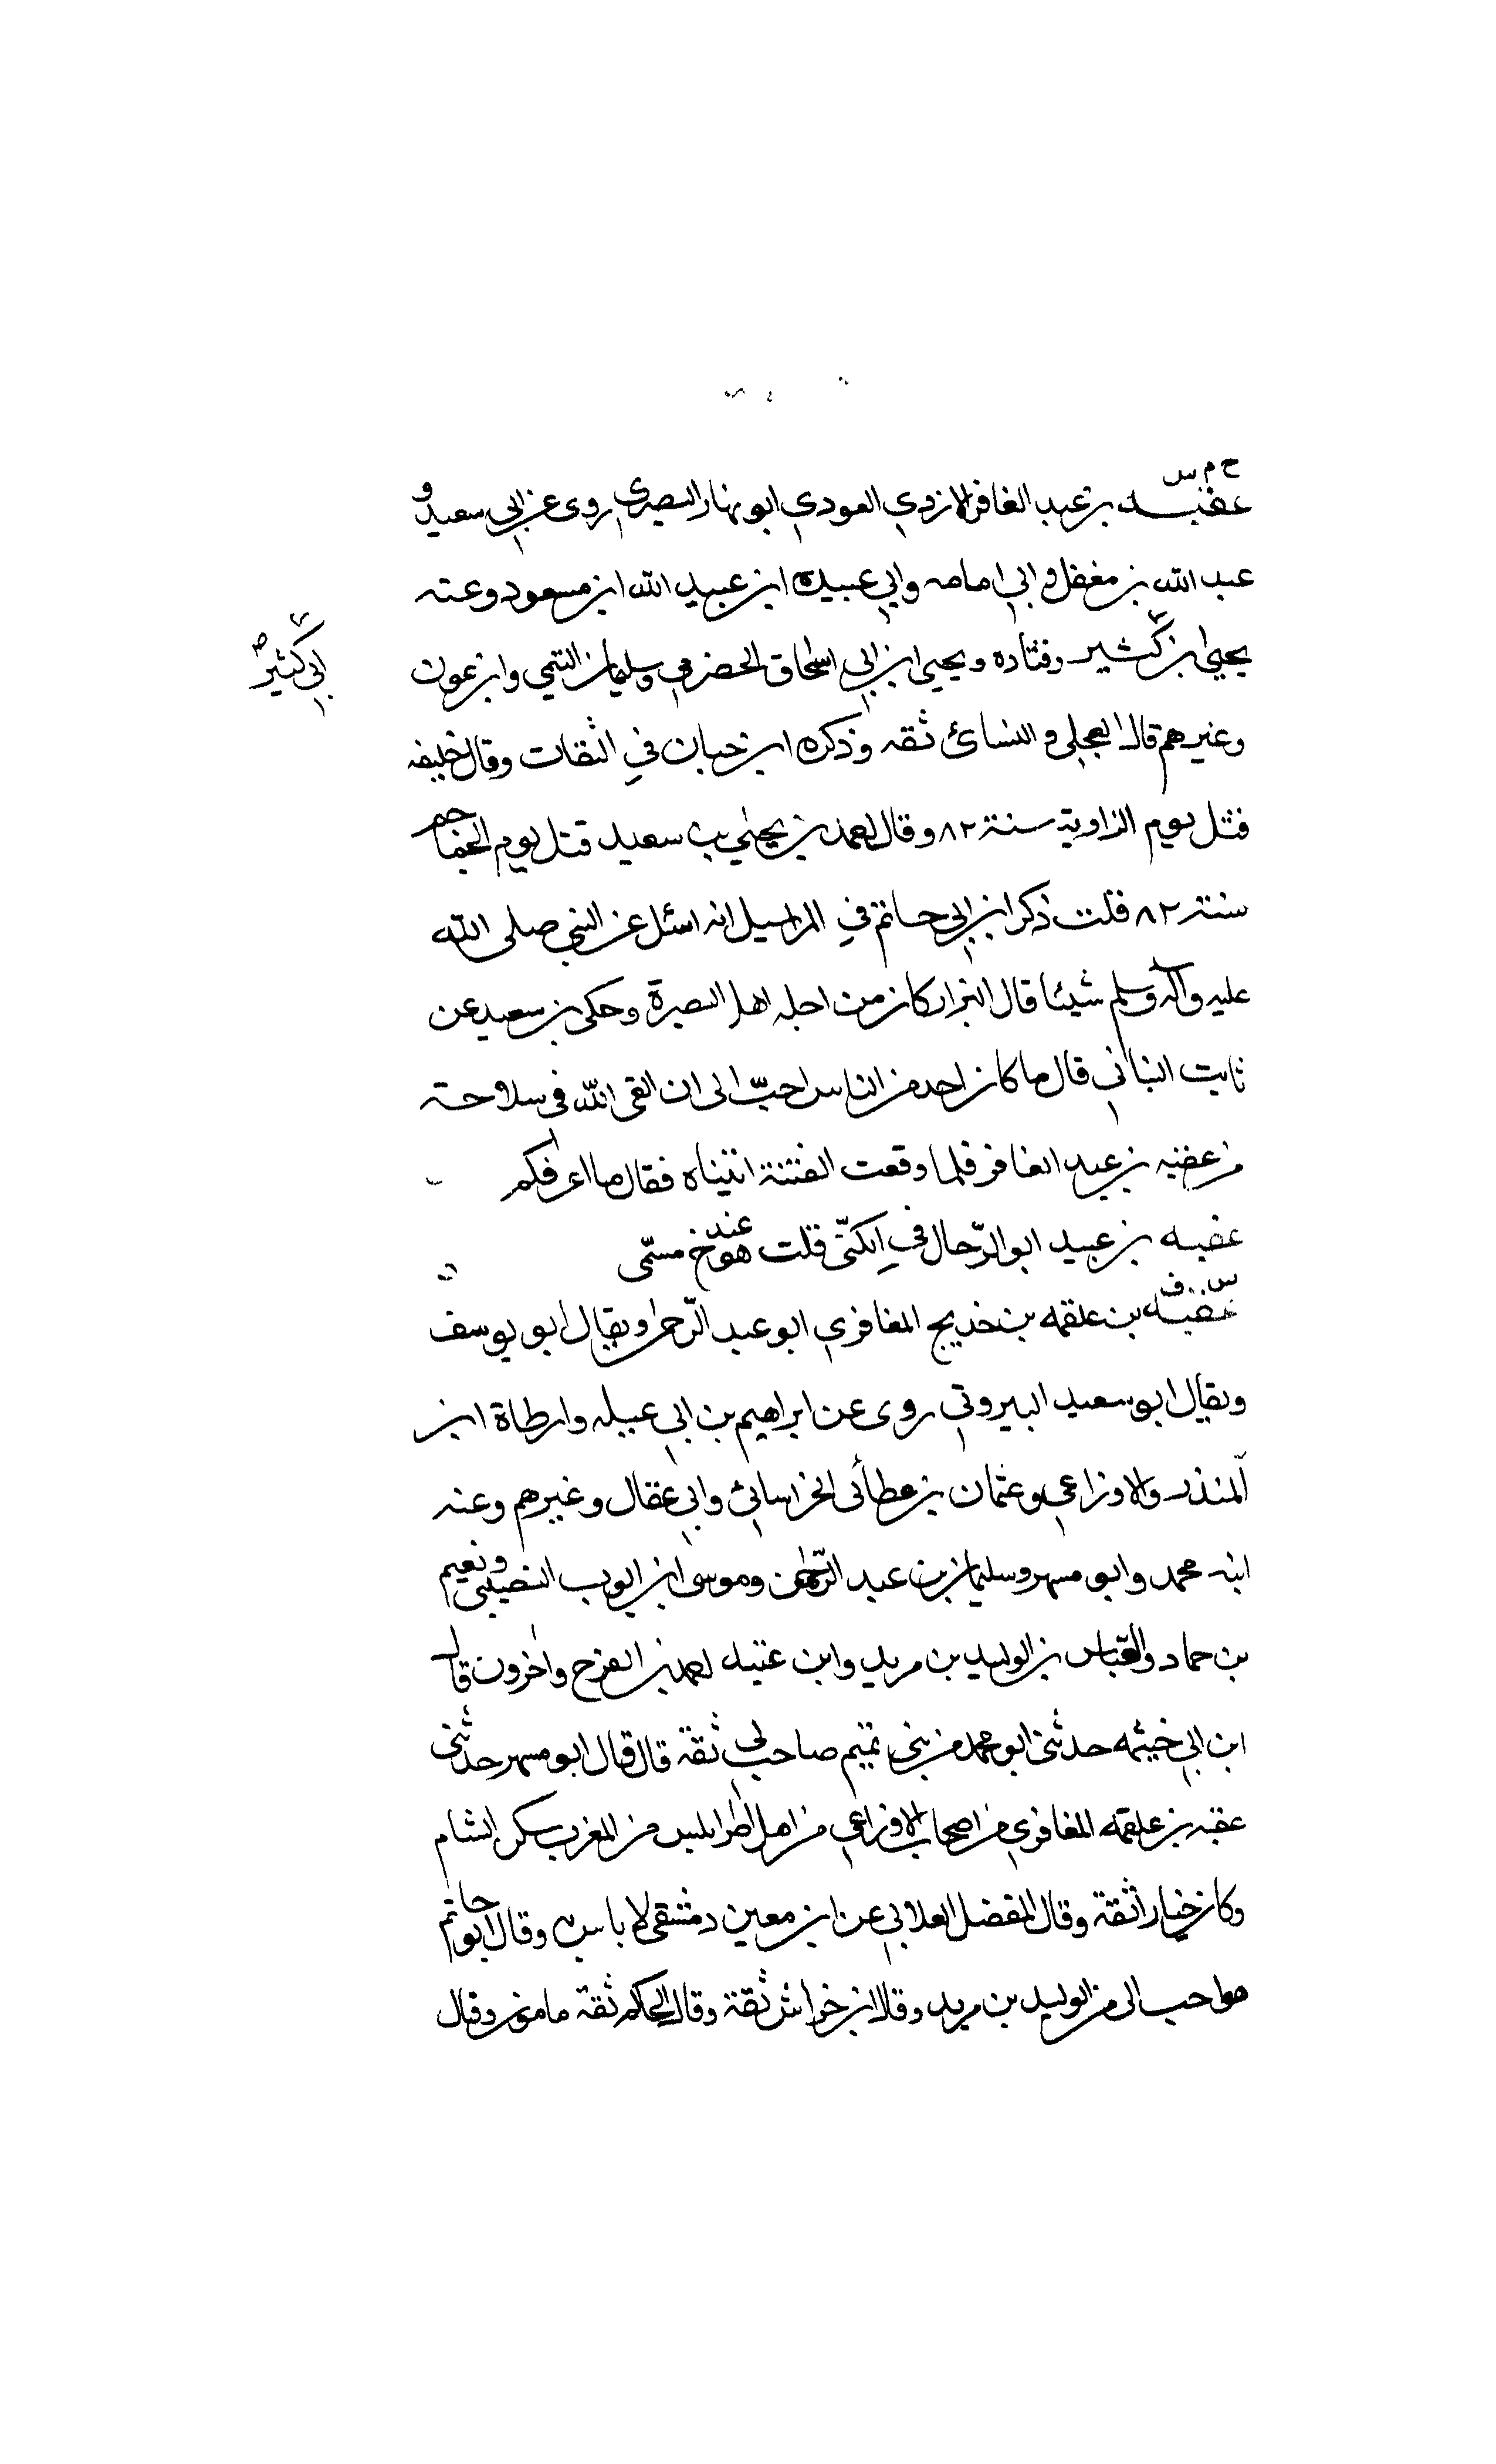 خ م س
عقبة بن عبد الغافر الازدي العودي ابو نهار البصري روى عن ابي سعيد و
عبد الله بن مغفل و ابي امامه وابي عبيده ابن عبيد الله ابن مسعود وعنه
يحيى بن كثير وقتاده ويحيى ابن ابي اسحاق الحضرمي وسليمان التيمي وابن عون
ابي كثير صح
وغيرهم قال العجلي و النسائ ثقه وذكره ابن حبان في الثقات وقال خليفه
قتل يوم الزاوية سنة ٨٢ وقال احمد بن يحيى بن سعيد قتل يوم الجماجم
سنة ٨٢ قلت ذكر ابن ابي حاتم في المراسيل انه اسئل عن النبي صلى الله
عليه وآله وسلم شيئا قال البزار كان من اجله اهل البصرة وحكى بن سعيد عن
ثابت البناني قال ما كان احد من الناس احبّ الى ان القى الله في سلاحه
من عقبه بن عبد الغافر فلما وقعت الفتنة اتيناه فقال ما اعرفكم
عقبه بن عبيد ابو الرّحال في الكنّى قلت هو عند خ مسمّى
س ق
عقبه بن علقمه بن خديج المعافري ابو عبد الرّحمن ويقال ابو يوسف
ويقال ابو سعيد البيروتي روى عن ابراهيم بن ابي عبله وارطاة ابن
المنذر والاوزاعي وعثمان بن عطائى الخراساني وابي عقال وغيرهم وعنه
ابنه محمد وابو مسهر وسليمان بن عبد الرّحمن وموسى ابن ايوب النصيبي ونعيم
بن حماد والعبّاس بن الوليد بن مريد وابن عتبه احمد بن الفرج واخرون قال
ابن ابي خيثمه حدثنى ابو محمد من بني تميم صاحب لي ثقة قال قال ابو مسهر حدثنى
عقبه بن علقمه المعافري من اصحاب الاوزاعي من اهل اطرابلس من المغرب سكن الشام
وكان خيارا ثقة وقال المفضل الغلابي عن ابن معين دمشقي لا باس به وقال ابو حاتم
هو احب الى من الوليد بن مريد وقال ابن خراش ثقة وقال الحاكم ثقة مامون وقال